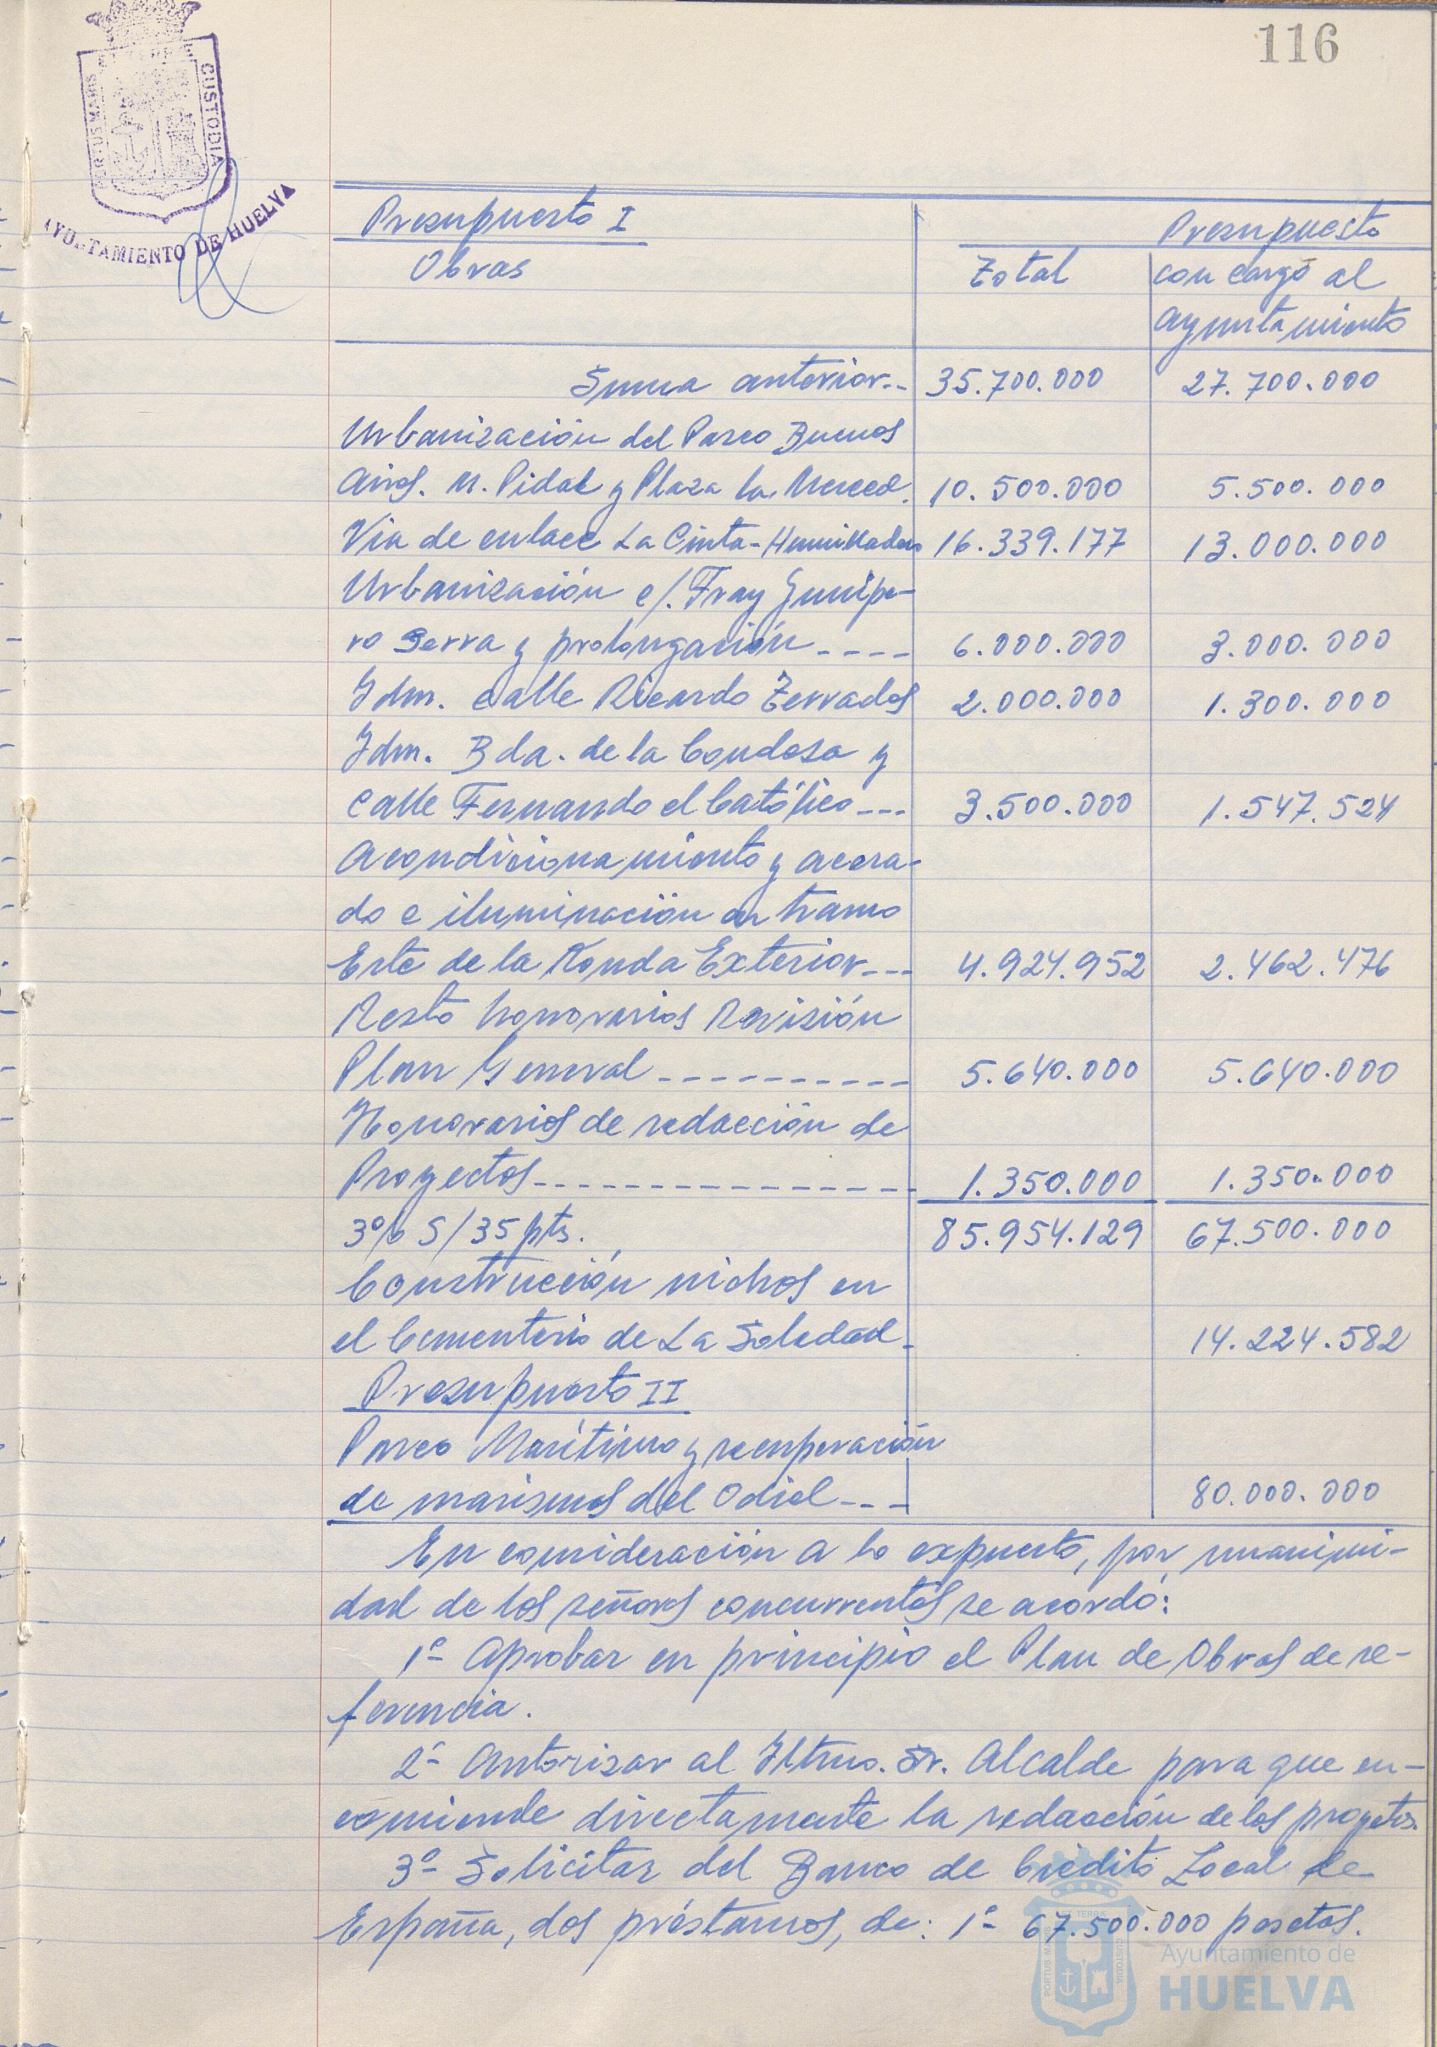 116
PORTUS MARIS ET TERRE CUSTODIA
AYUNTAMIENTO DE HUELVA
Presupuesto I Presupuesto
Obras Total con cargo al
Ayuntamiento
Suma anterior.. 35.700.000 27.700.000
Urbanización del Paseo Buenos
Aires. M. Pidal y Plaza la Merced. 10.500.000 5.500.000
Via de enlace La Cinta-Humilladero 16.339.177 13.000.000
Urbanización c/. Fray Junípe-
ro Serra y prolongación---- 6.000.000 3.000.000
Idm. calle Ricardo Terrades 2.000.000 1.300.000
Idm. Bda. de la Condesa y
calle Fernando el Católico--- 3.500.000 1.547.524
Acondicionamiento y acera-
do e iluminación en tramo
Este de la Ronda Exterior--- 4.924.952 2.462.476
Resto honorarios Revisión
Plan General---------- 5.640.000 5.640.000
Honorarios de redacción de
Proyectos--------------- 1.350.000 1.350.000
3% S/35 pts. 85.954.129 67.500.000
Construcción nichos en
el Cementerio de La Soledad- 14.224.582
Presupuesto II
Paseo Marítimo y recuperación
de marismas del Odiel--- 80.000.000
En consideración a lo expuesto, por unanimi-
dad de los señores concurrentes se acordó:
1º- Aprobar en principio el Plan de Obras de re-
ferencia.
2º- Autorizar al Iltmo. Sr. Alcalde para que en-
comiende directamente la redacción de los proyectos.
3º- Solicitar del Banco de Crédito Local de
España, dos préstamos, de: 1º- 67.500.000 pesetas.
Ayuntamiento de
HUELVA